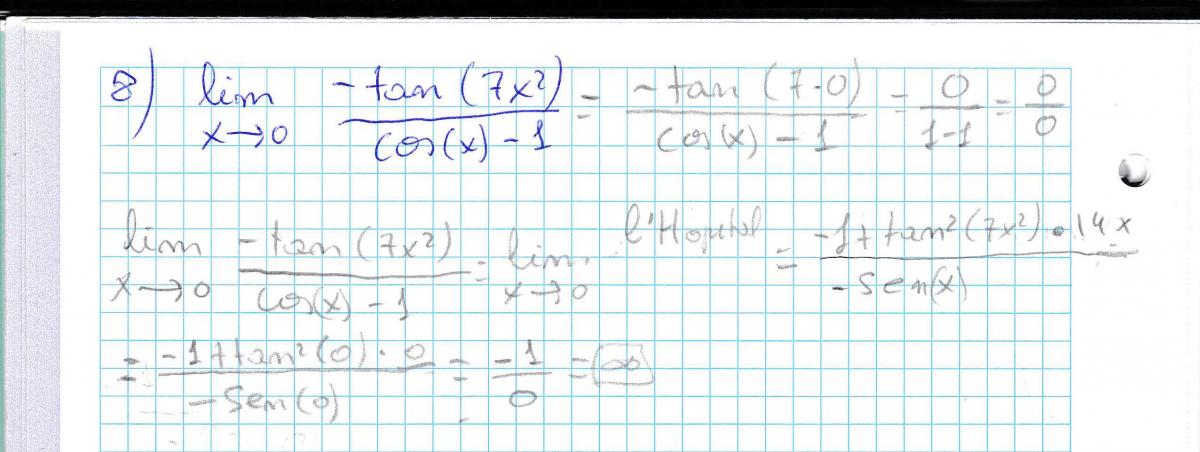 8) lim x→0 -tan(7x²)/(cos(x)-1) = -tan(7·0)/(cos(x)-1) = 0/(1-1) = 0/0
lim x→0 -tan(7x²)/(cos(x)-1) = lim x→0 l'Hopital = -1+tan²(7x²)·14x/-sen(x)
= -1+tan²(0)·0/-sen(0) = -1/0 = ∞